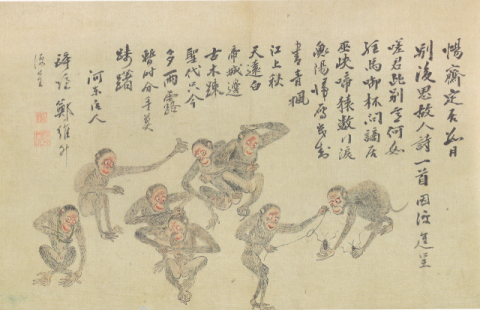 別後思故人詩一首
嗟君此別意何如
駐馬啣杯問謫居
巫峽啼猿數行淚
衡陽帰雁幾封
書青楓
江上秋
天遠白
帝城邊
古木踈
聖代只今
多雨露
暫時分手莫
躊躇
河東后人
鄭維